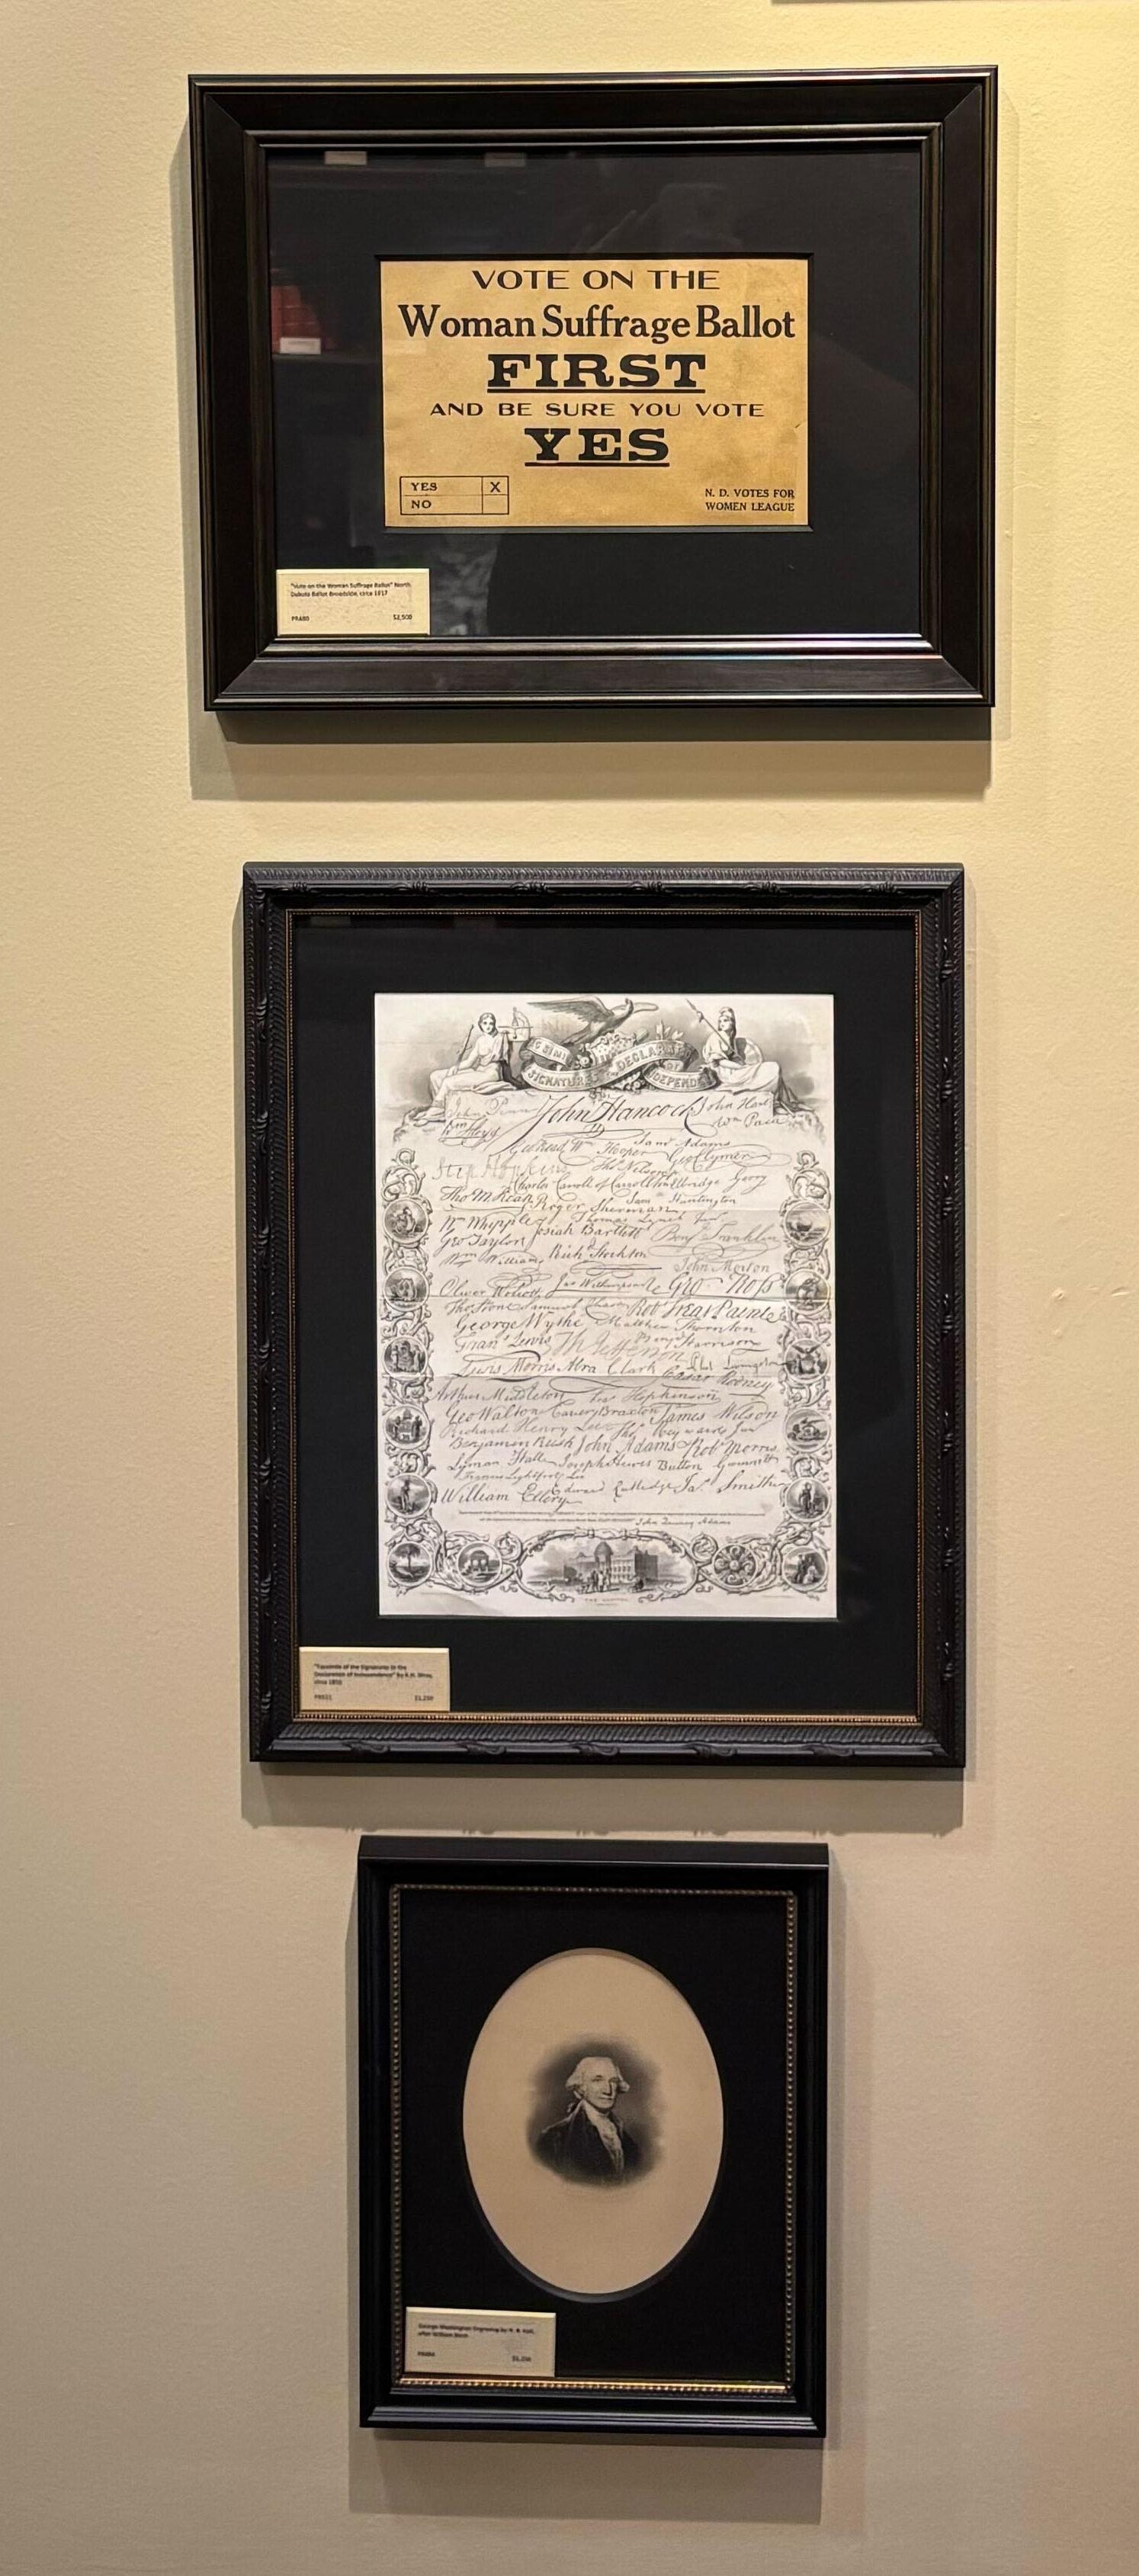 VOTE ON THE
Woman Suffrage Ballot
FIRST
AND BE SURE YOU VOTE
YES
YES X
NO
N. D. VOTES FOR
WOMEN LEAGUE
"Vote on the Woman Suffrage Ballot" North
Dakota Ballot Broadside, circa 1917
$2,500
SIGNATURES DECLARA
John Penn John Hancock John Hart
Wm Floyd Wm Paca
Wm Hooper Saml Adams
Geo Clymer
Step Hopkins Thos Nelson jr
Charles Carroll of Carrollton Elbridge Gerry
Tho M:Kean Roger Sherman Saml Huntington
Wm Whipple Thomas Lynch Junr
Geo Taylor Josiah Bartlett Benj Franklin
Wm Williams Richd Stockton
John Morton
Oliver Wolcott Jno Witherspoon Geo Ross
Thos Stone Samuel Chase Robt Treat Paine
George Wythe Matthew Thornton
Frans Lewis Th Jefferson Benj Harrison
Lewis Morris Abra Clark Phil Livingston
Caesar Rodney
Arthur Middleton Fras Hopkinson
Geo Walton Carter Braxton James Wilson
Richard Henry Lee Thos Heyward Junr
Benjamin Rush John Adams Robt Morris
Lyman Hall Joseph Hewes Button Gwinnett
Francis Lightfoot Lee
William Ellery Edward Rutledge Jas Smith
John Quincy Adams
THE CAPITOL
"Facsimile of the Signatures to the
Declaration of Independence" by
circa
$1,250
George Washington Engraving by H. B. Hall,
after William